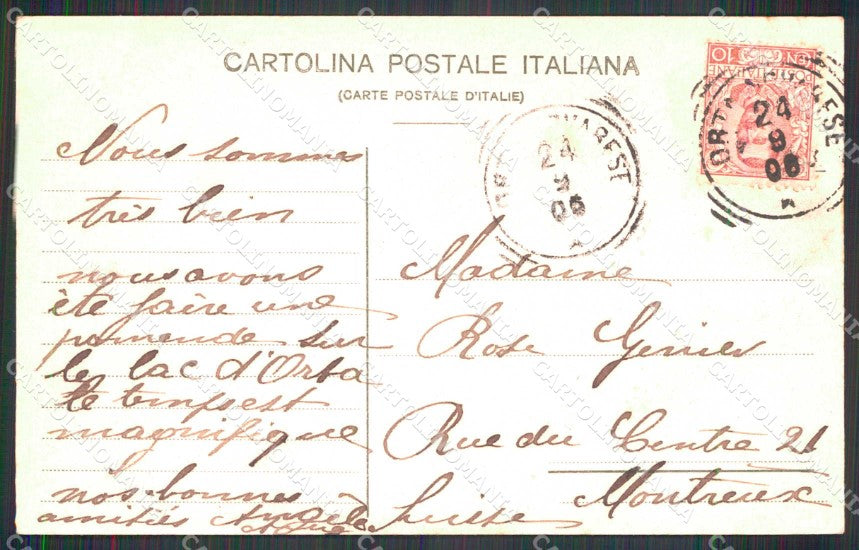 CARTOLINA POSTALE ITALIANA
(CARTE POSTALE D'ITALIE)
10
ORTA NOVARESE
24
9
06
NOVARESE
24
9
06
Nous sommes
très bien
nous avons
été faire une
pomende sur
le lac d'Orta
le temps est
magnifique
nos bonnes
amitiés
Madame
Rose
Rue du Centre 21
Montreux
Suisse
CARTOLINOMANIA